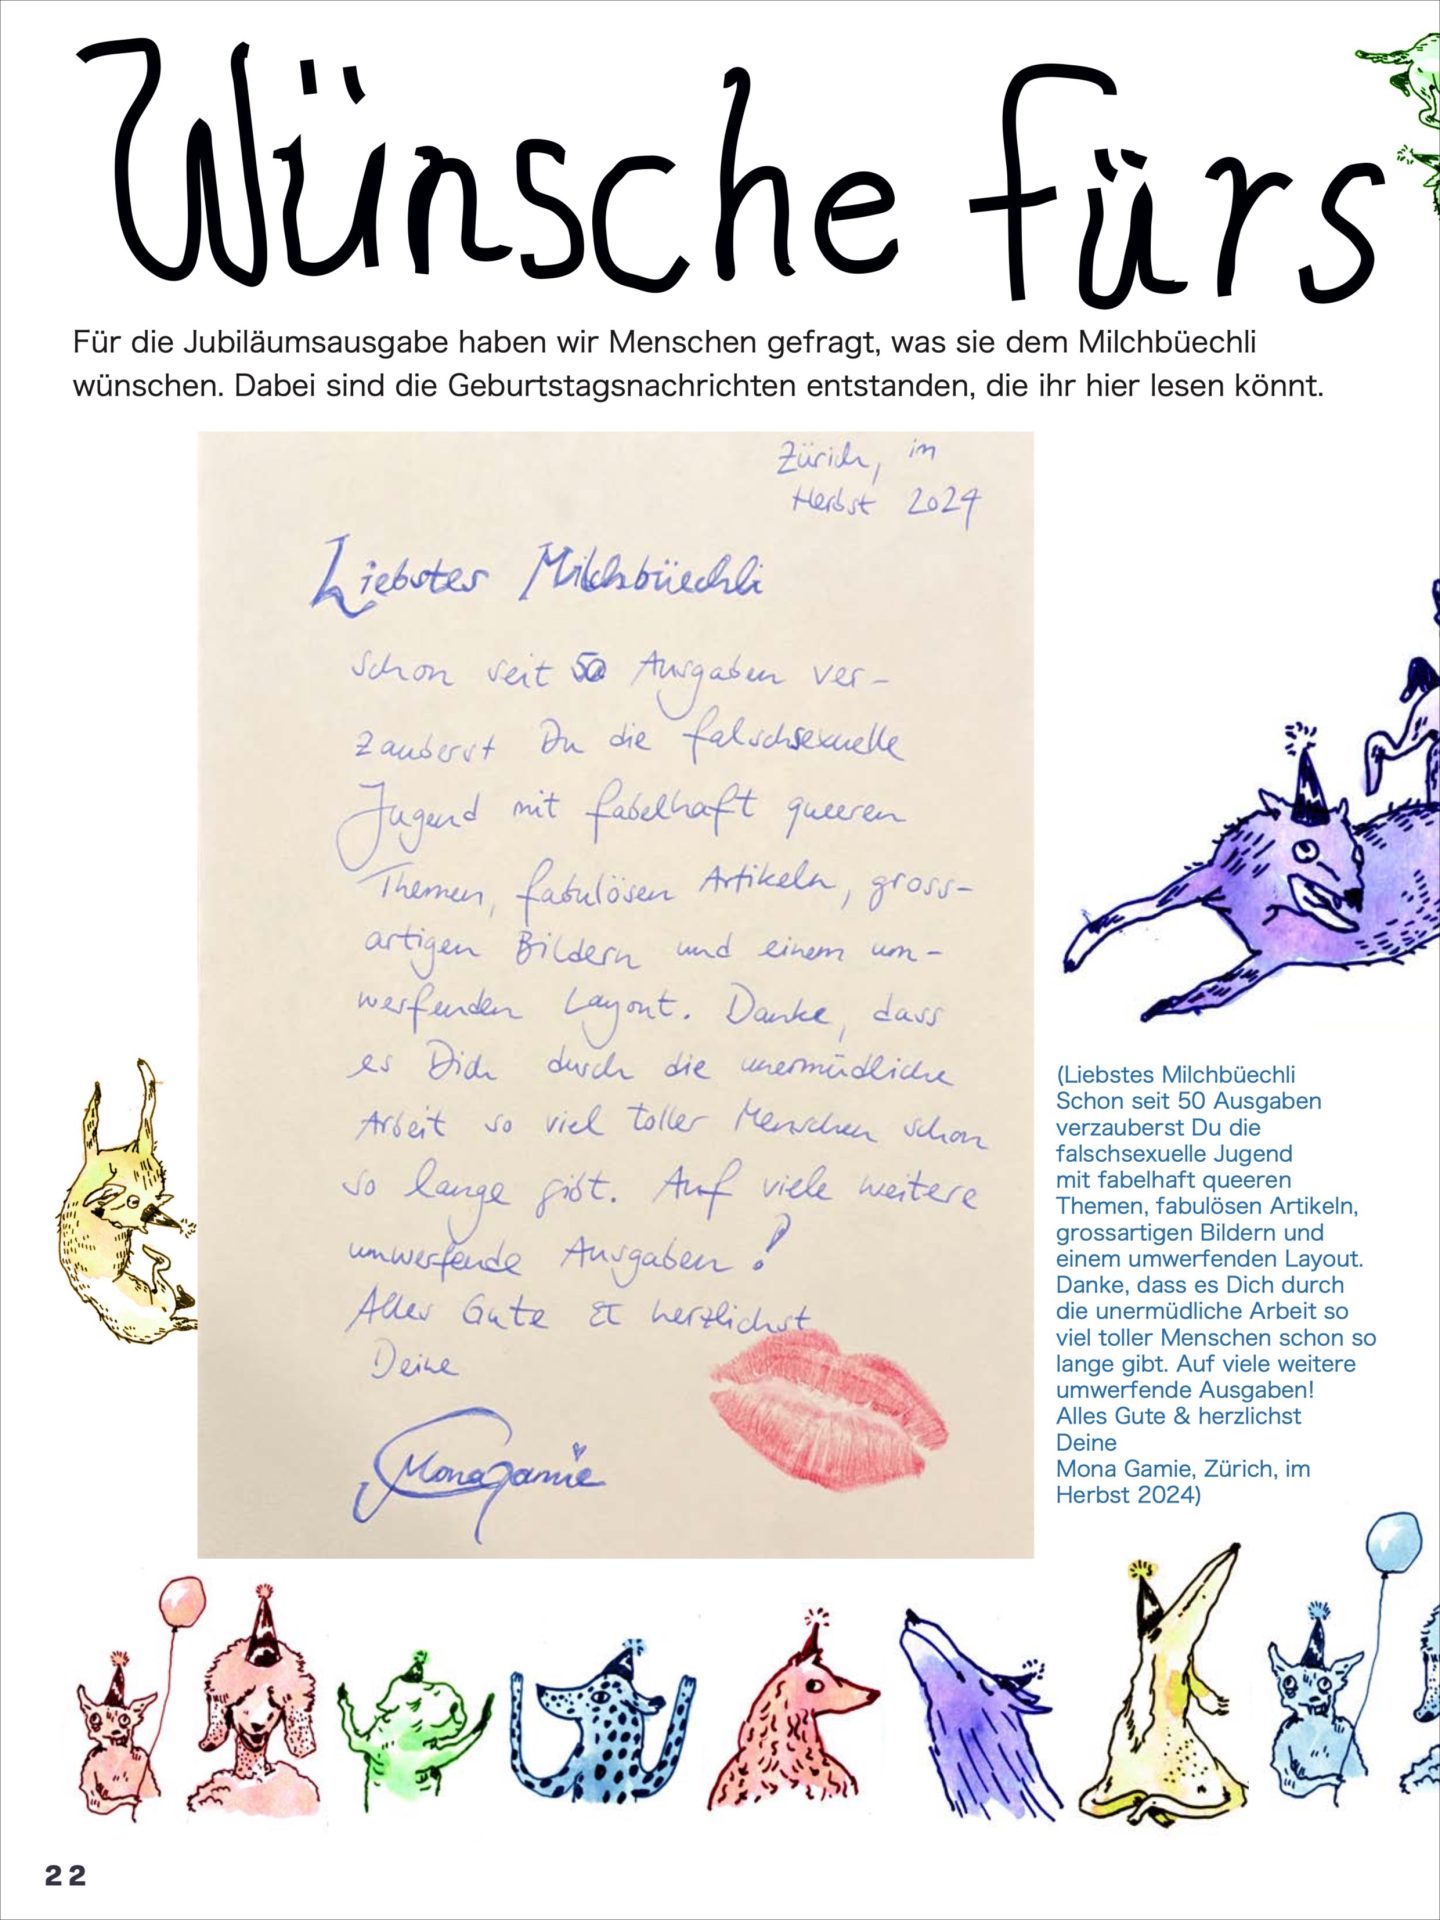 Wünsche fürs
Für die Jubiläumsausgabe haben wir Menschen gefragt, was sie dem Milchbüechli
wünschen. Dabei sind die Geburtstagsnachrichten entstanden, die ihr hier lesen könnt.
Zürich, im
Herbst 2024
Liebstes Milchbüechli
Schon seit 50 Ausgaben ver-
zauberst Du die falschsexuelle
Jugend mit fabelhaft queeren
Themen, fabulösen Artikeln, gross-
artigen Bildern und einem um-
werfenden Layout. Danke, dass
es Dich durch die unermüdliche
Arbeit so viel toller Menschen schon
so lange gibt. Auf viele weitere
umwerfende Ausgaben!
Alles Gute & herzlichst
Deine
Mona Gamie
(Liebstes Milchbüechli
Schon seit 50 Ausgaben
verzauberst Du die
falschsexuelle Jugend
mit fabelhaft queeren
Themen, fabulösen Artikeln,
grossartigen Bildern und
einem umwerfenden Layout.
Danke, dass es Dich durch
die unermüdliche Arbeit so
viel toller Menschen schon so
lange gibt. Auf viele weitere
umwerfende Ausgaben!
Alles Gute & herzlichst
Deine
Mona Gamie, Zürich, im
Herbst 2024)
22